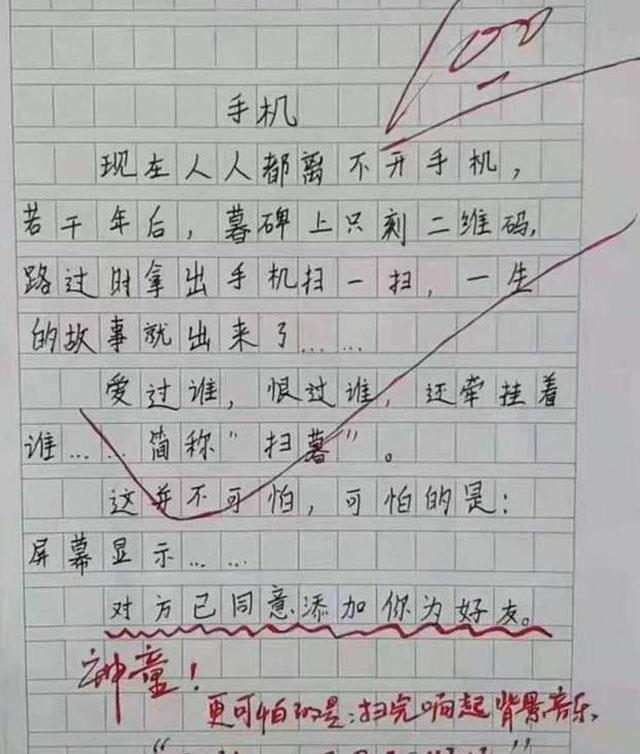 100
手机
现在人人都离不开手机，
若干年后，暮碑上只刻二维码，
路过时拿出手机扫一扫，一生
的故事就出来了……
爱过谁，恨过谁，还牵挂着
谁……简称"扫暮"。
这并不可怕，可怕的是：
屏幕显示……
对方已同意添加你为好友。
神童！
更可怕的是：扫完响起背景音乐，